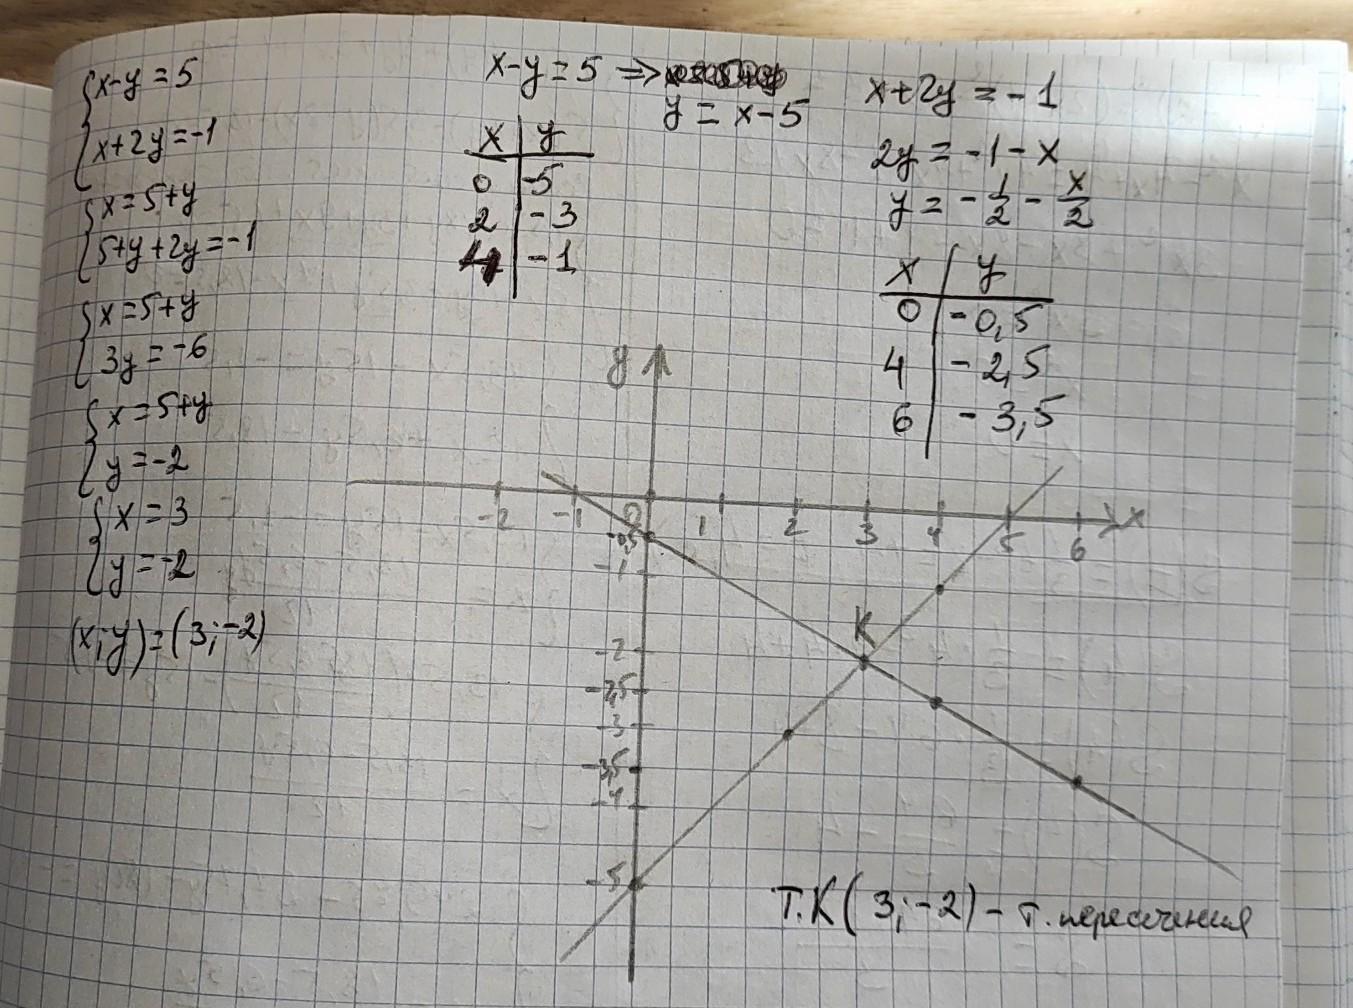 x-y=5
x+2y=-1
x=5+y
5+y+2y=-1
x=5+y
3y=-6
x=5+y
y=-2
x=3
y=-2
(x;y)=(3;-2)
x-y=5 ⇒
y=x-5
x y
0 -5
2 -3
4 -1
x+2y=-1
2y=-1-x
y=-1/2-x/2
x y
0 -0,5
4 -2,5
6 -3,5
y
-2 -1 0 1 2 3 4 5 6 x
-0,5
-1
K
-2
-2,5
-3
-3,5
-4
-5
Т.К(3;-2)-т.пересечения